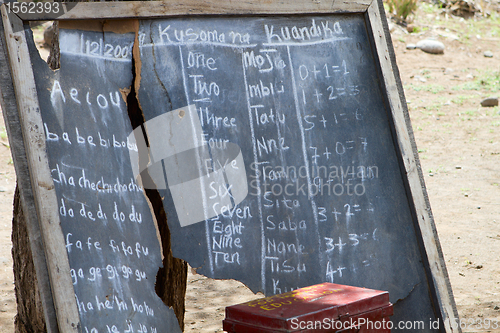 Kusoma na Kuandika
12/200
Aeiou
ba be bi bo bu
cha che chi cho chu
da de di do du
fa fe fi fo fu
ga ge gi go gu
ha he hi ho hu
One Moja 0+1=1
Two mbili 1+2=
Three Tatu 5+1=
Four Nne 7+0=
Five Tano
Six Sita 3+2=
Seven Saba 3+3=
Eight Nane 4+
Nine Tisa
Ten